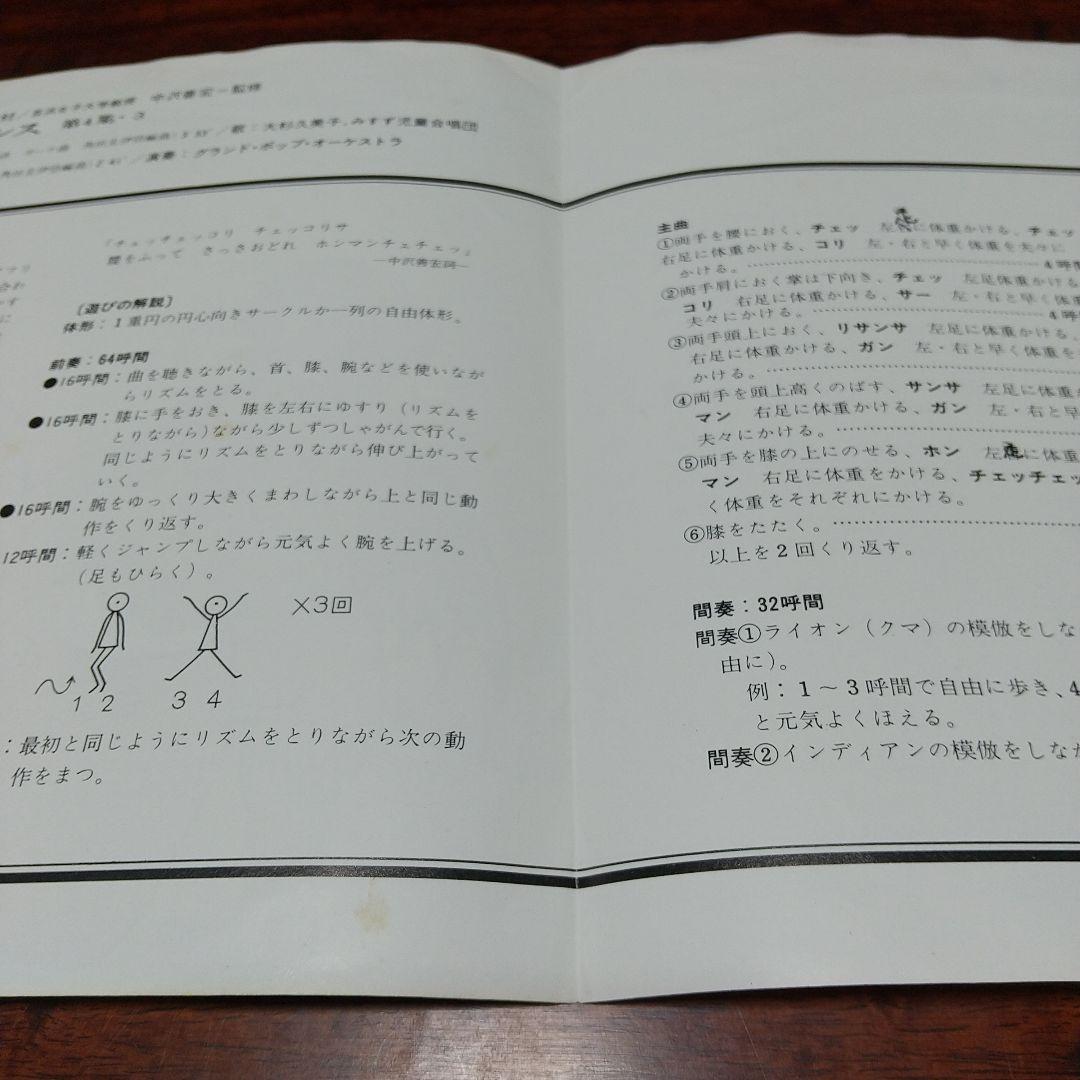 中沢善宏＝監修
ンス 第4集・3
歌：大杉久美子、みすず児童合唱団
演奏：グランド・ポップ・オーケストラ
『チェッチェッコリ チェッコリサ
腰をふって さっさおどれ ホンマンチェチェッ』
―中沢善宏詞―
〔遊びの解説〕
体形：1重円の円心向きサークルか一列の自由体形。
前奏：64呼間
●16呼間：曲を聴きながら、首、膝、腕などを使いなが
らリズムをとる。
●16呼間：膝に手をおき、膝を左右にゆすり（リズムを
とりながら)ながら少しずつしゃがんで行く。
同じようにリズムをとりながら伸び上がって
いく。
●16呼間：腕をゆっくり大きくまわしながら上と同じ動
作をくり返す。
12呼間：軽くジャンプしながら元気よく腕を上げる。
（足もひらく）。
×3回
1 2 3 4
：最初と同じようにリズムをとりながら次の動
作をまつ。
主曲
①両手を腰におく、チェッ 左足に体重かける、チェッ
右足に体重かける、コリ 左・右と早く体重を夫々に
かける。 4呼間
②両手肩におく掌は下向き、チェッ 左足体重かける
コリ 右足に体重かける、サー 左・右と早く体重
夫々にかける。 4呼
③両手頭上におく、リサンサ 左足に体重かける、
右足に体重かける、ガン 左・右と早く体重を
かける。
④両手を頭上高くのばす、サンサ 左足に体重か
マン 右足に体重かける、ガン 左・右と早
夫々にかける。
⑤両手を膝の上にのせる、ホン 左足に体重
マン 右足に体重をかける、チェッチェッ
く体重をそれぞれにかける。
⑥膝をたたく。
以上を2回くり返す。
間奏：32呼間
間奏①ライオン（クマ）の模倣をしな
由に）。
例：1～3呼間で自由に歩き、4
と元気よくほえる。
間奏②インディアンの模倣をしなが